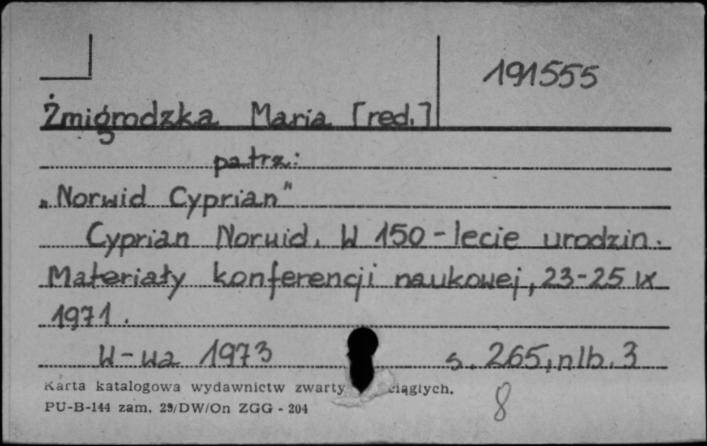 191555
Żmigrodzka Maria [red.]
patrz:
„Norwid Cyprian"
Cyprian Norwid. W 150-lecie urodzin.
Materiały konferencji naukowej, 23-25 IX
1971.
W-wa 1973 s. 265, nlb. 3
Karta katalogowa wydawnictw zwarty ciągłych.
PU-B-144 zam. 29/DW/On ZGG - 204
8